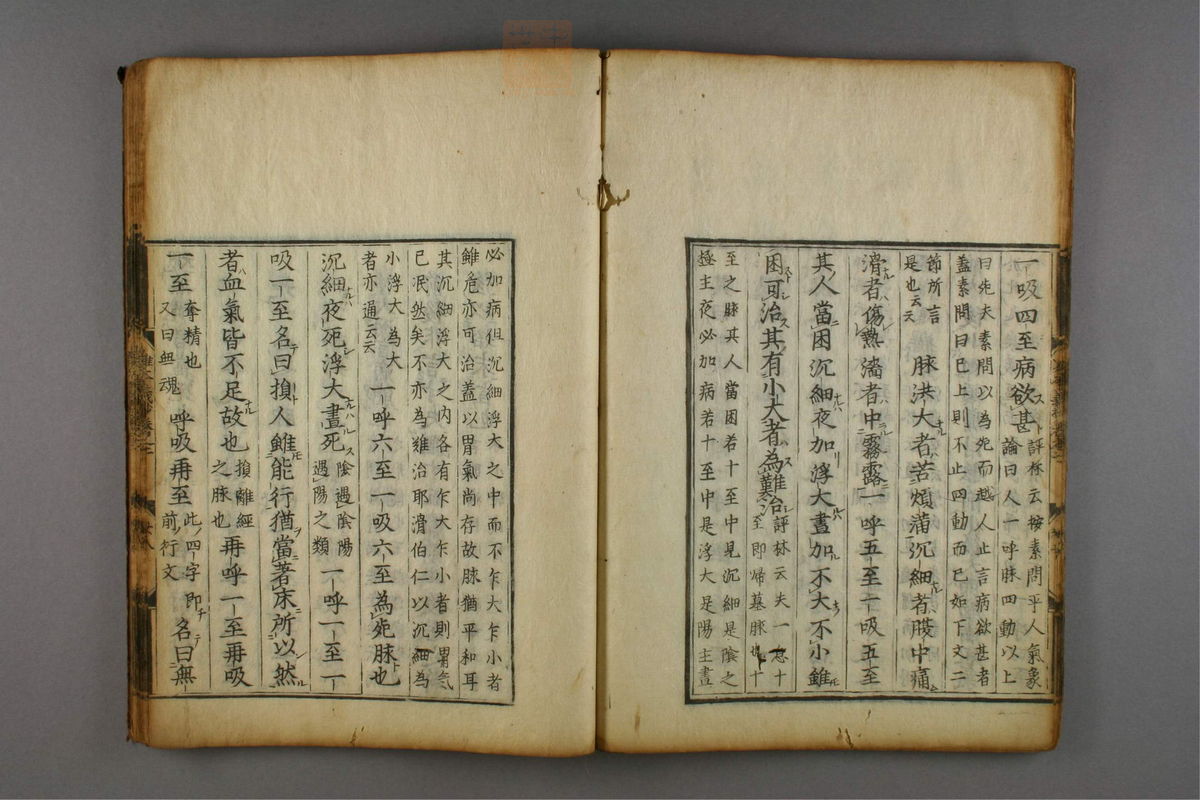 一吸四至病欲甚 評林云按素問平人氣象
論曰人一呼脉四動以上
曰死夫素問以為死而越人止言病欲甚者
盖素問曰已上則不止四動而已如下文二
節所言
是也云云
脉洪大者苦煩蒲沉細者腹中痛
滑者傷熱濇者中霧露一呼五至一吸五至
其人當困沉細夜加浮大晝加不大不小雖
困可治其有小大者為難治 評林云夫一息十
至即歸墓脉也十
至之脉其人當困若十至中見沉細是陰之
極主夜必加病若十至中是浮大是陽主晝
必加病但沉細浮大之中而不乍大乍小者
雖危亦可治盖以胃氣尚存故脉猶平和耳
其沉細浮大之内各有乍大乍小者則胃氣
已泯然矣不亦為難治耶滑伯仁以沉細為
小浮大為大
者亦通云云
一呼六至一吸六至為死脉也
沉細夜死浮大晝死 陰遇陰陽
遇陽之類
一呼一至一
吸一至名曰損人雖能行猶當著床所以然
者血氣皆不足故也 損離經
之脉也
再呼一至再吸
一至 奪精也
又曰無魂
呼吸再至 此ノ四字即チ
前ノ行文
名曰無